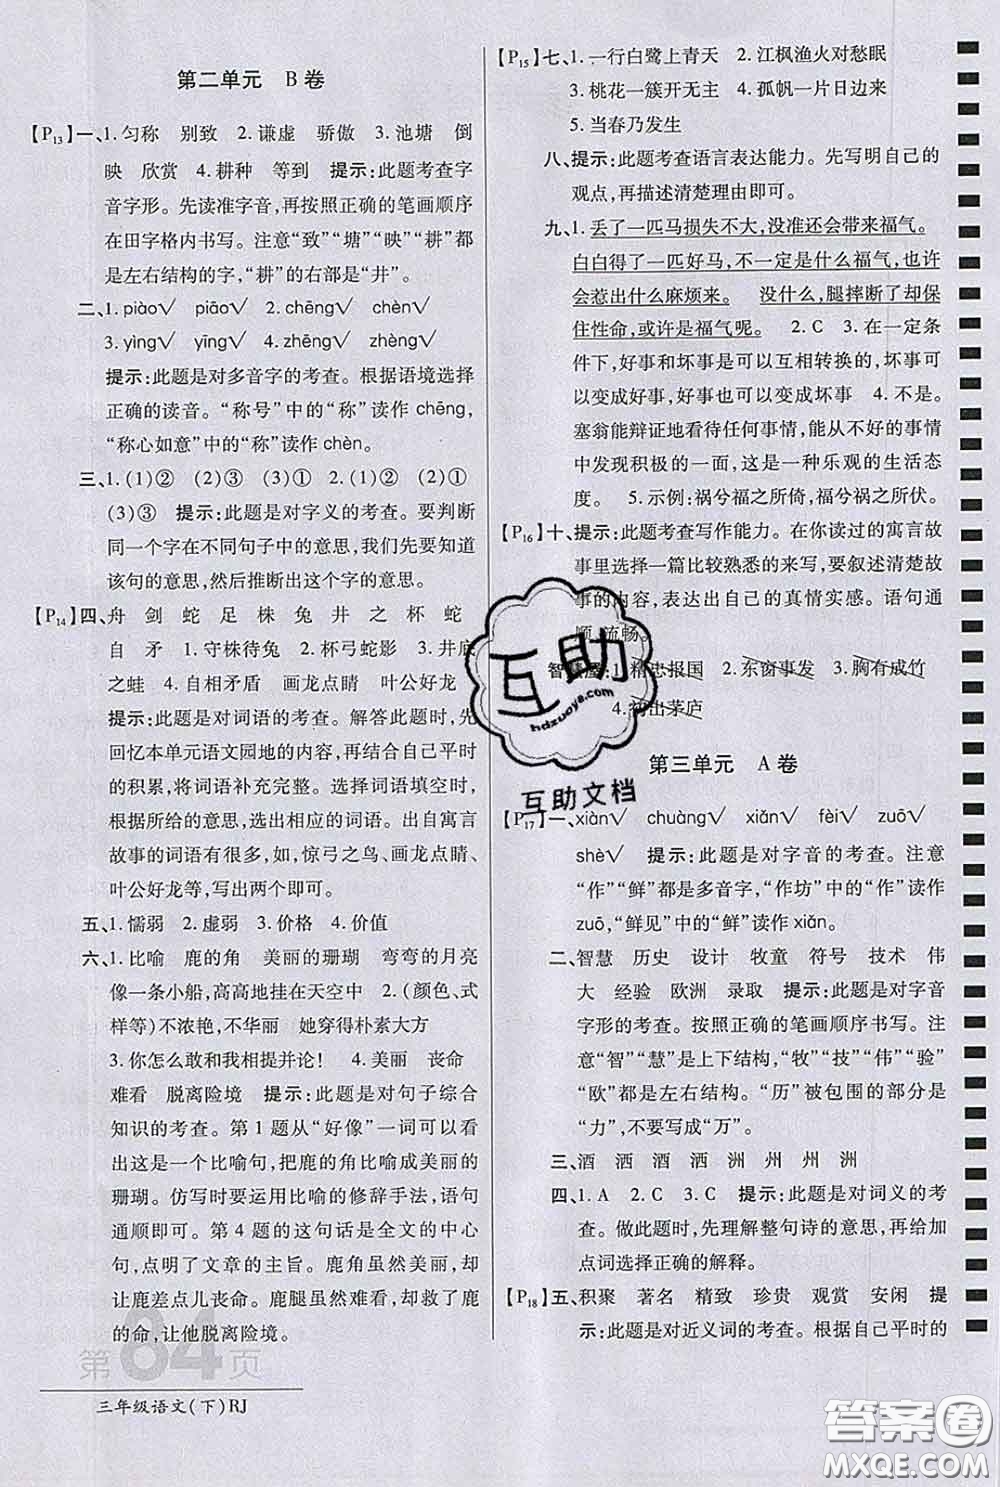 第二单元　B卷
【P13】一、1. 匀称　别致　2. 谦虚　骄傲　3. 池塘　倒
映　欣赏　4. 耕种　等到　提示:此题考查字
音字形。先读准字音,再按照正确的笔画顺序
在田字格内书写。注意“致”“塘”“映”“耕”都
是左右结构的字,“耕”的右部是“井”。
二、1. piào√　piāo√　2. chēng√　chèn√
3. yìng√　yīng√　4. zhēng√　zhèng√
提示:此题是对多音字的考查。根据语境选择
正确的读音。“称号”中的“称”读作 chēng,
“称心如意”中的“称”读作 chèn。
三、1. (1)②　(2)③　(3)①　2. (1)②　(2)①
(3)③　提示:此题是对字义的考查。要判断
同一个字在不同句子中的意思,我们先要知道
该句的意思,然后推断出这个字的意思。
【P14】四、舟　剑　蛇　足　株　兔　井　之　杯　蛇
自　矛　1. 守株待兔　2. 杯弓蛇影　3. 井底
之蛙　4. 自相矛盾　画龙点睛　叶公好龙
提示:此题是对词语的考查。解答此题时,先
回忆本单元语文园地的内容,再结合自己平时
的积累,将词语补充完整。选择词语时,要
根据所给的意思,选出相应的词语。出自寓言
故事的词语有很多,如,惊弓之鸟、画龙点睛、
叶公好龙等,写出两个即可。
五、1. 懦弱　2. 虚弱　3. 价格　4. 价值
六、1. 比喻　鹿的角　美丽的珊瑚　弯弯的月亮
像一条小船,高高地挂在天空中　2. (颜色、式
样等)不浓艳,不华丽　她穿得朴素大方
3. 你怎么敢和我相提并论!　4. 美丽　丧命
难看　脱离险境　提示:此题是对句子综合
知识的考查。第 1 题从“好像”一词可以看
出这是一个比喻句,把鹿的角比喻成美丽的
珊瑚。仿写时要运用比喻的修辞手法,语句
通顺即可。第 4 题的这句话是全文的中心
句,点明了文章的主旨。鹿角虽然美丽,却
让鹿差点儿丧命。鹿腿虽然难看,却救了鹿
的命,让他脱离险境。
第84页
三年级语文(下)RJ
【P15】七、1. 一行白鹭上青天　2. 江枫渔火对愁眠
3. 桃花一簇开无主　4. 孤帆一片日边来
5. 当春乃发生
八、提示:此题考查语言表达能力。先写明自己的
观点,再描述清楚理由即可。
九、1. 丢了一匹马损失不大,没准还会带来福气。
白白得了一匹好马,不一定是什么福气,也许
会惹出什么麻烦来。　没什么,腿摔断了却保
住性命,或许是福气呢。　2. C　3. 在一定条
件下,好事和坏事是可以互相转换的,坏事可
以变成好事,好事也可以变成坏事　4. 不是。
塞翁能辩证地看待任何事情,能从不好的事情
中发现积极的一面,这是一种乐观的生活态
度。　5. 示例:祸兮福之所倚,福兮祸之所伏。
【P16】十、提示:此题考查写作能力。在你读过的寓言故
事里选择一篇比较熟悉的来写,要叙述清楚故
事的内容,表达出自己的真情实感。语句通
顺、流畅。
智慧屋:1. 精忠报国　2. 东窗事发　3. 胸有成竹
4. 初出茅庐
第三单元　A卷
【P17】一、xiàn√　chuàng√　xiǎn√　fèi√　zuō√
shè√　提示:此题是对字音的考查。注意
“作”“鲜”都是多音字,“作坊”中的“作”读作
zuō,“鲜见”中的“鲜”读作 xiǎn。
二、智慧　历史　设计　牧童　符号　技术　伟
大　经验　欧洲　录取　提示:此题是对字音
字形的考查。按照正确的笔画顺序书写。注
意“智”“慧”是上下结构,“牧”“技”“伟”“验”
“欧”都是左右结构。“历”被包围的部分是
“力”,不要写成“万”。
三、酒　洒　洒　酒　洲　州　州　洲
四、1. A　2. C　3. C　提示:此题是对词义的考
查。做此题时,先理解整句诗的意思,再给加
点词选择正确的解释。
【P18】五、积聚　著名　精致　珍贵　观赏　安闲　提
示:此题是对近义词的考查。根据自己平时的
互助
hdzuoye.com
互助文档
答案圈
MXQE.COM